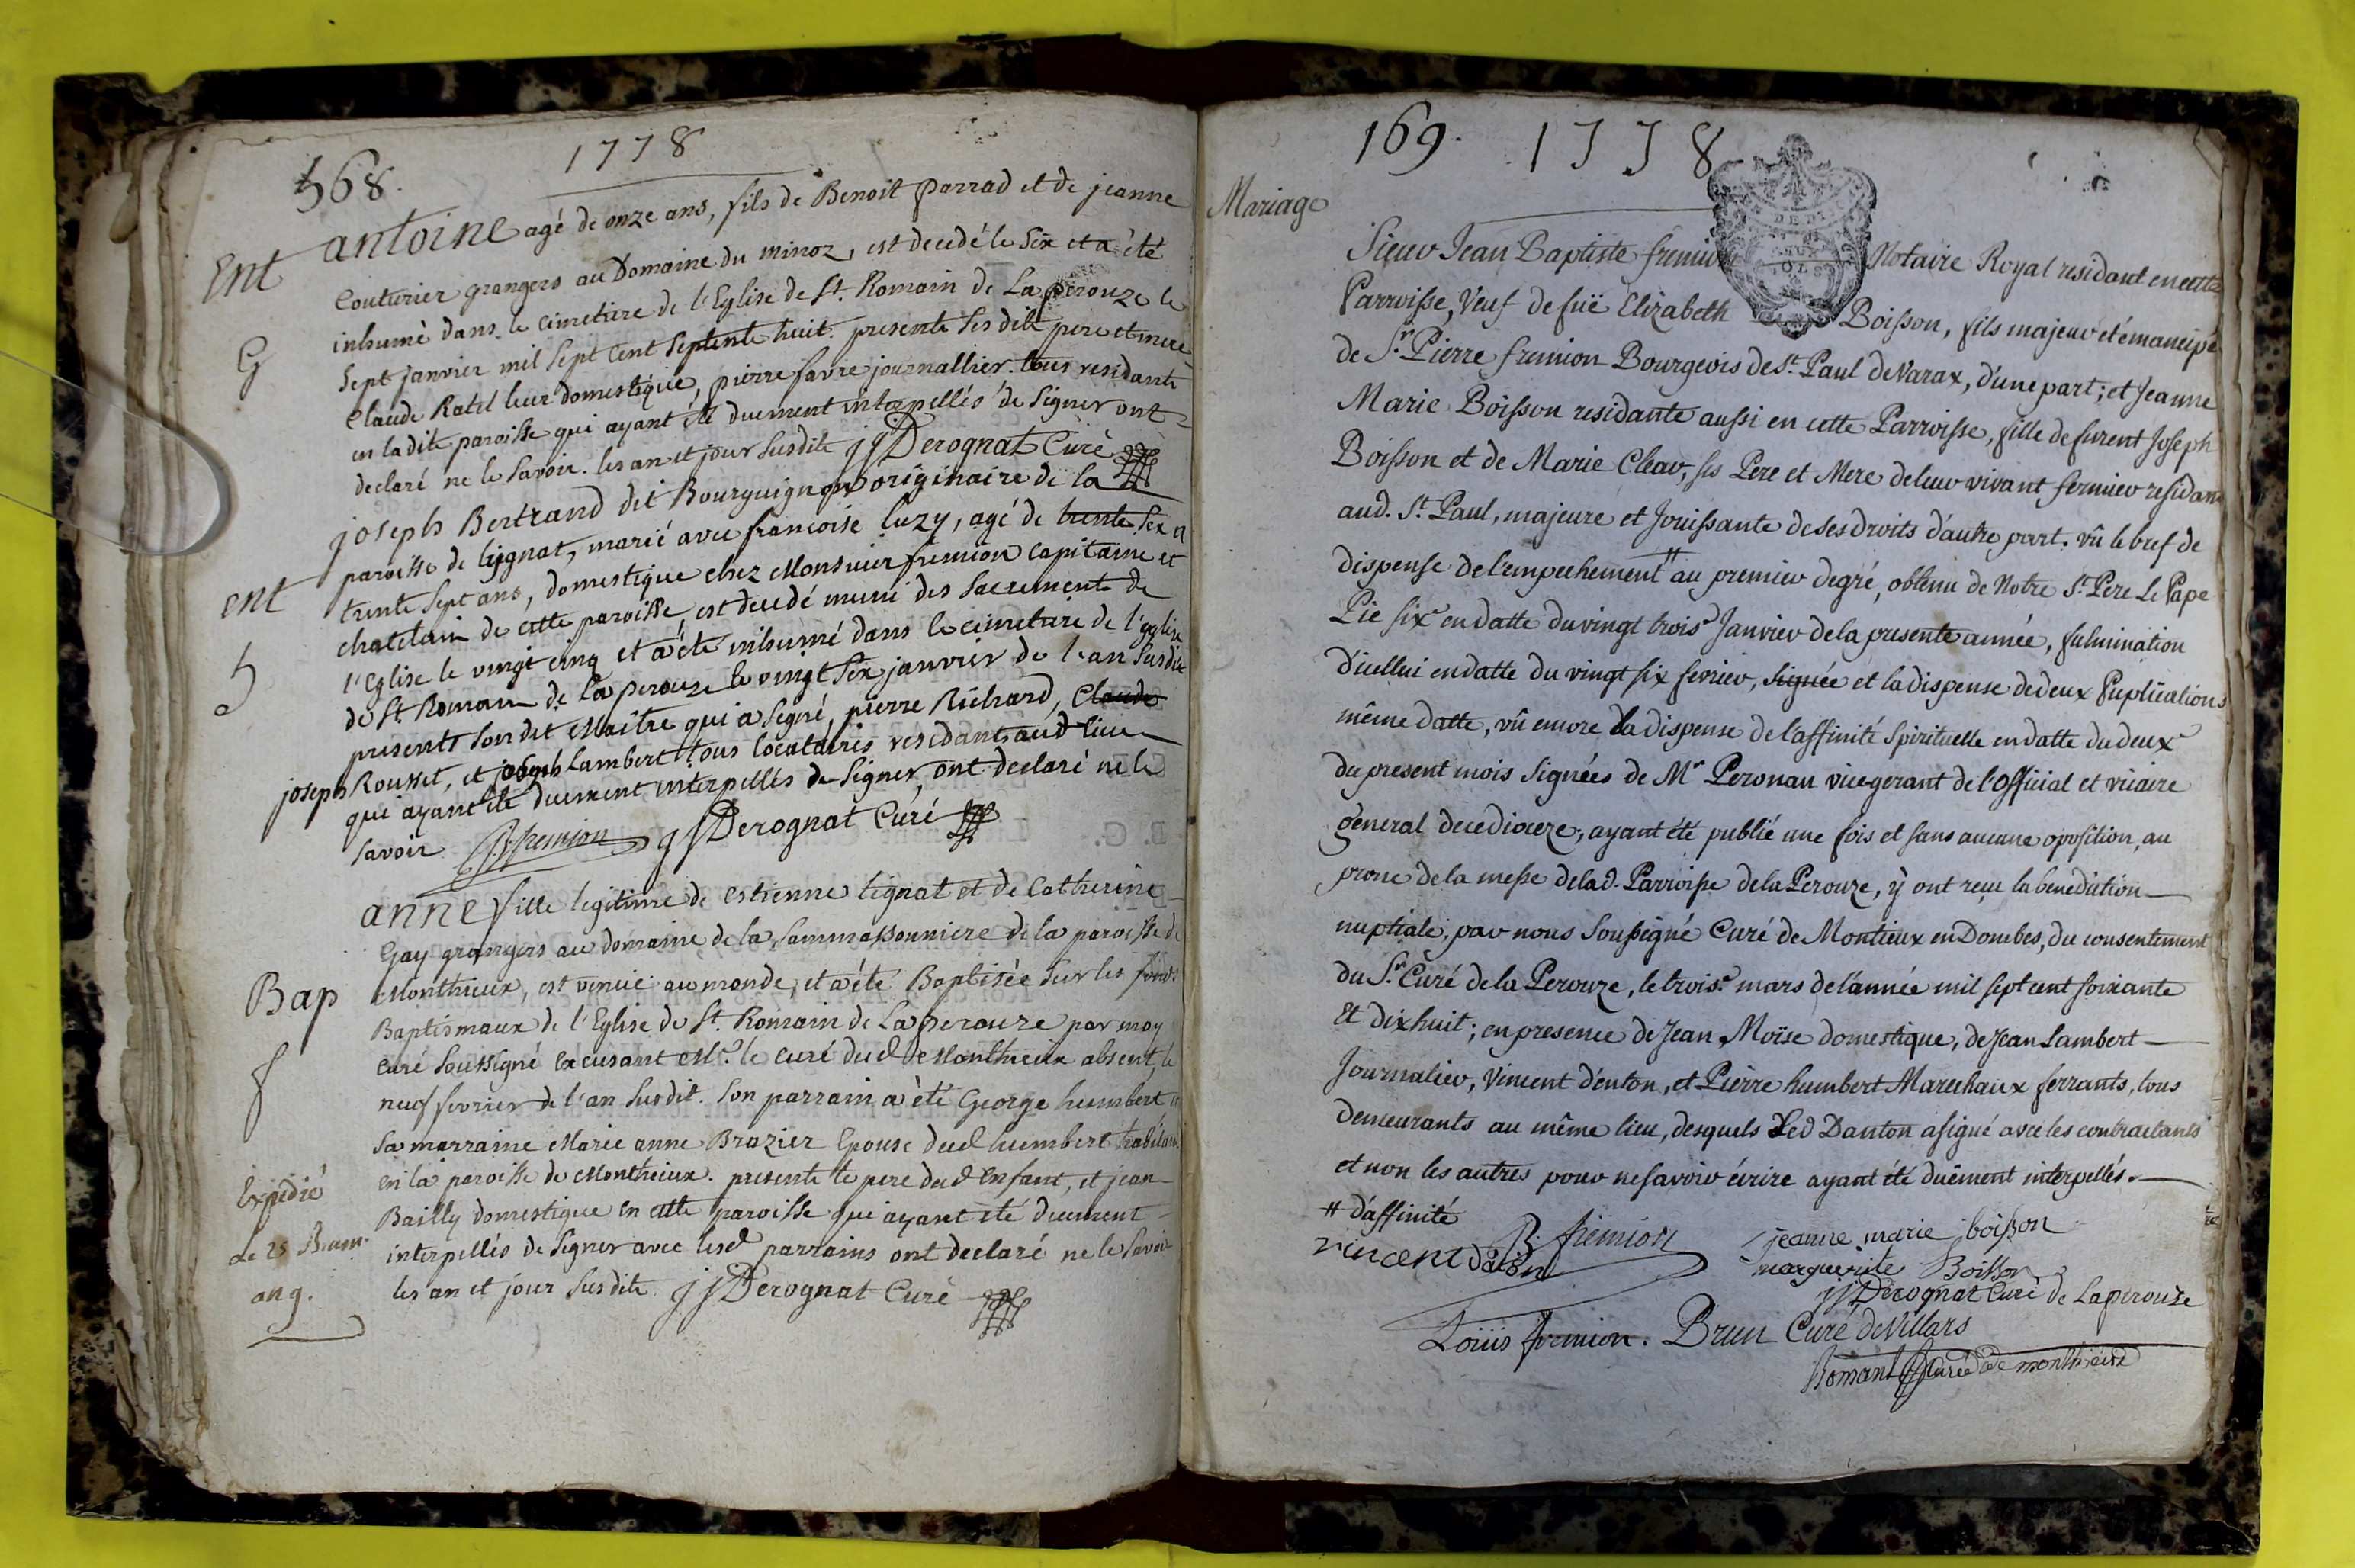 168.
1778
Ent
G
antoine agé de onze ans, fils de Benoit parrad et de jeanne
Couturier grangers au Domaine du minoz, est decedé le Six et a été
inhumé dans le cimetiere de l'Eglise de St. Romain de Laperouze le
Sept janvier mil Sept Cent Septente huit. presents ses dits pere et mere
Claude Ratel leur domestique, pierre favre journallier. tous residants
en ladite paroisse qui ayant été duement interpellés de Signer ont
declaré ne le Savoir. les an et jour Susdits jj Derognat Curé
ent
joseph Bertrand dit Bourguignon originaire de la
paroisse de lignat, marié avec francoise luzy, agé de trente Six a
trente Sept ans, domestique chez Monsieur fremion capitaine et
chatelain de cette paroisse, est decedé muni des Sacrements de
l'Eglise le vingt cinq et a été inhumé dans le cimetiere de l'eglise
de St. Romain de la perouze le vingt Six janvier de l'an Susdit
presents Son dit Maitre qui a Signé, pierre Richard, Claude
joseph Rousset, et joseph Lambert tous locataires residants aud lieu
qui ayant été duement interpellés de Signer, ont declaré ne le
Savoir fremion jj Derognat Curé
Bap
f
Expedié
le 25 Brum.
an 9.
anne fille legitime de estienne lignat et de Catherine
Gay grangers au domaine de la Sammassonniere de la paroisse de
Monthieux, est venue au monde, et a été Baptisée Sur les fonds
Baptismaux de l'Eglise de St. Romain de Laperouze par moy
curé Soussigné excusant Mr. le curé dud Monthieux absent, le
neuf fevrier de l'an Susdit. Son parrain a été George humbert
Sa marraine Marie anne Brazier Epouse dud humbert habitans
en la paroisse de Monthieux. presents le pere dud Enfant, et jean
Bailly domestique en cette paroisse qui ayant été duement
interpellés de Signer avec lesd parrains ont declaré ne le Savoir
les an et jour Susdits jj Derognat Curé
169. 1778
Mariage
Sieur Jean Baptiste fremion Notaire Royal residant en cette
Parroisse, Veuf de fuë Elizabeth Boisson, fils majeur et émancipé
de Sr. Pierre fremion Bourgeois de St. Paul de Varax, d'une part; et Jeanne
Marie Boisson residante aussi en cette Parroisse, fille de furent Joseph
Boisson et de Marie Cleav, ses Pere et Mere de leur vivant fermier residant
aud. St. Paul, majeure et Jouissante de ses droits d'autre part. vû le bref de
dispense de l'empechement # au premier degré, obtenu de Notre St. Pere Le Pape
Pie Sixe en datte du vingt troise Janvier de la presente année, fulmination
d'icellui en datte du vingt six fevrier, Signée et la dispense de deux Puplications
même datte, vû encore la dispense de l'affinité Spirituelle en datte du deuxe
du present mois Signées de Mr Peronau vicegerant de l'Official et vicaire
general de ce dioceze, ayant été publié une fois et sans aucune oposition, au
prone de la messe de lad. Parroisse de la Perouze, ÿ ont reçu la benediction
nuptiale, par nous Soussigné Curé de Montieux en Dombes, du consentement
du Sr. Curé de la Perouze, le troise mars de l'année mil sept cent soixante
Et dix huit; en presence de Jean Moïse domestique, de Jean Lambert
Journalier, Vincent d'enton, et Pierre humbert Marechaux ferrants, tous
demeurants au même lieu, desquels Led Danton a signé avec les contractants
et non les autres pour ne savoir écrire ayant été duëment interpellés.
# d'affinité
B. fremion
jeanne marie boisson
vincent danton
marguerite Boisson
jj Derognat Curé de Laperouze
Louis fremion. Brun Curé de Villars
Romant Curé de monthieux